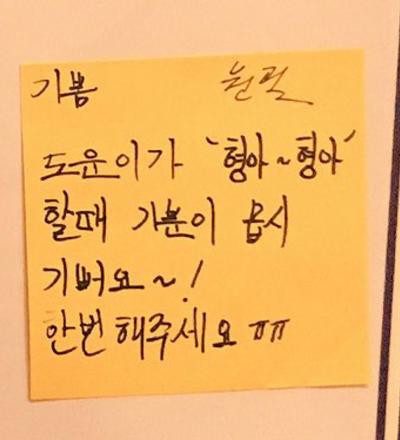 기쁨 원필
도운이가 '형아~형아'
할때 기분이 몹시
기뻐요~!
한번 해주세요 ㅠㅠ